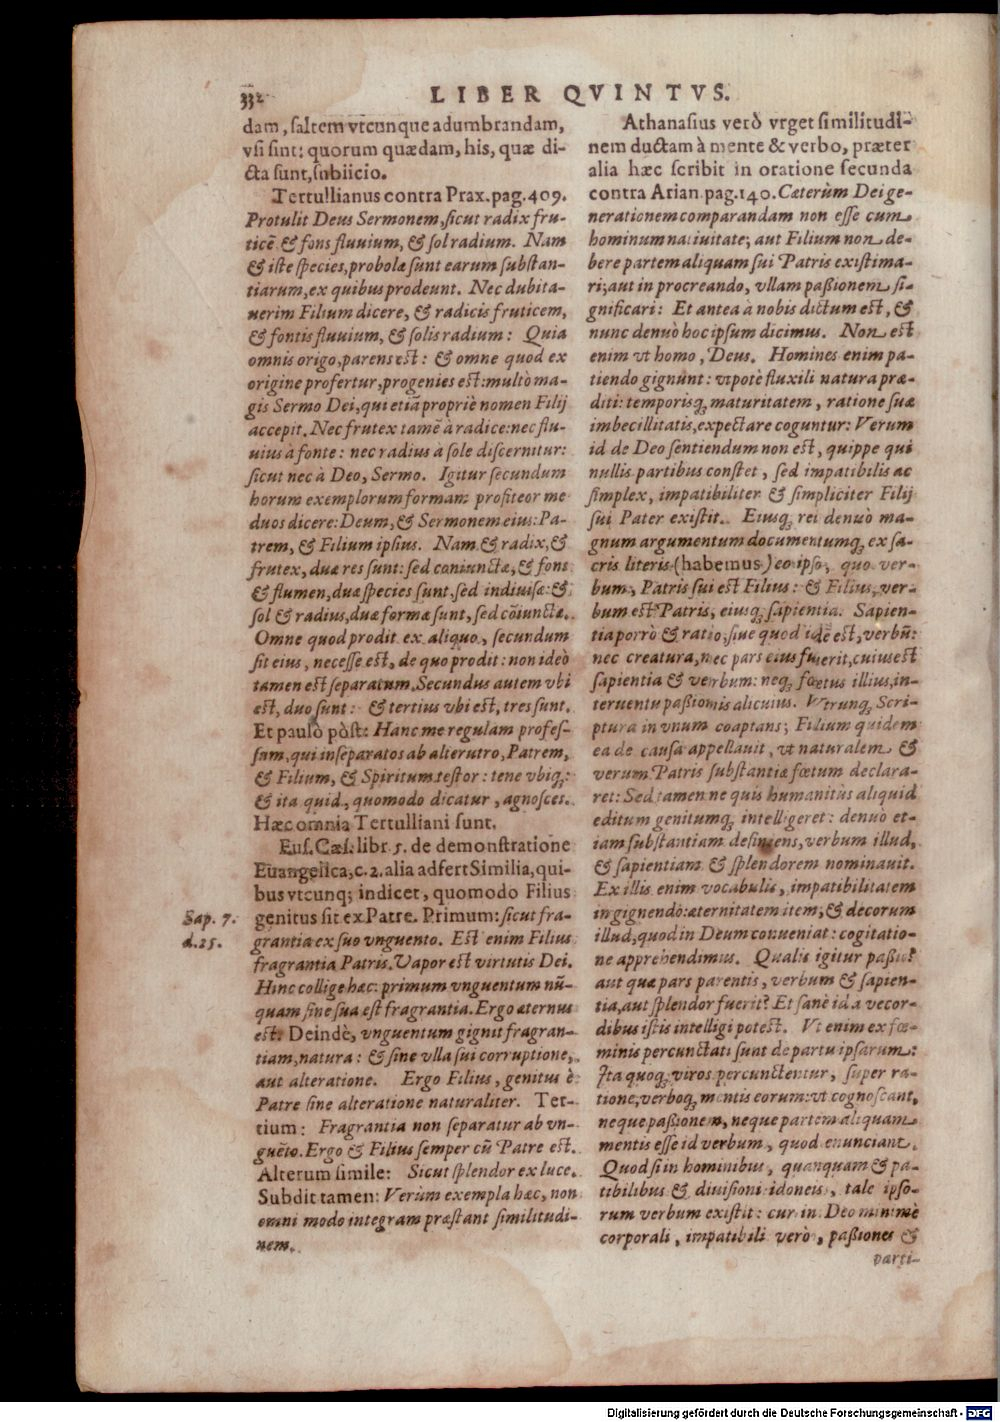 332
LIBER QVINTVS.
dam, saltem vtcunque adumbrandam,
vsi sint: quorum quædam, his, quæ di-
cta sunt, subiicio.
Tertullianus contra Prax. pag. 409.
Protulit Deus Sermonem, sicut radix fru-
ticē & fons fluuium, & sol radium. Nam
& iste species, probolæ sunt earum substan-
tiarum, ex quibus prodeunt. Nec dubita-
uerim Filium dicere, & radicis fruticem,
& fontis fluuium, & solis radium: Quia
omnis origo, parens est: & omne quod ex
origine profertur, progenies est: multò ma-
gis Sermo Dei, qui etiā propriè nomen Filij
accepit. Nec frutex tamē à radice: nec flu-
uius à fonte: nec radius à sole discernitur:
sicut nec à Deo, Sermo. Igitur secundum
horum exemplorum formam profiteor me
duos dicere: Deum, & Sermonem eius: Pa-
trem, & Filium ipsius. Nam & radix, &
frutex, duæ res sunt: sed coniunctæ, & fons
& flumen, duæ species sunt, sed indiuisæ: &
sol & radius, duæ formæ sunt, sed cōiunctæ.
Omne quod prodit ex aliquo, secundum
sit eius, necesse est, de quo prodit: non ideò
tamen est separatum. Secundus autem vbi
est, duo sunt: & tertius vbi est, tres sunt.
Et paulò pòst: Hanc me regulam profes-
sum, qui inseparatos ab alterutro, Patrem,
& Filium, & Spiritum testor: tene vbiq;:
& ita quid, quomodo dicatur, agnosces.
Hæc omnia Tertulliani sunt.
Eus. Cæs. libr 5. de demonstratione
Euangelica, c. 2. alia adfert Similia, qui-
bus vtcunq; indicet, quomodo Filius
Sap. 7. genitus sit ex Patre. Primum: sicut fra-
d. 25. grantia ex suo vnguento. Est enim Filius
fragrantia Patris. Vapor est virtutis Dei.
Hinc collige hæc: primum vnguentum nū-
quam sine sua est fragrantia. Ergo æternus
est. Deindè, vnguentum gignit fragran-
tiam, natura: & sine vlla sui corruptione,
aut alteratione. Ergo Filius, genitus è
Patre sine alteratione naturaliter. Ter-
tium: Fragrantia non separatur ab vn-
guēto. Ergo & Filius semper cū Patre est.
Alterum simile: Sicut splendor ex luce.
Subdit tamen: Verùm exempla hæc, non
omni modo integram præstant similitudi-
nem.
Athanasius verò vrget similitudi-
nem ductam à mente & verbo, præter
alia hæc scribit in oratione secunda
contra Arian. pag. 140. Cæterùm Dei ge-
nerationem comparandam non esse cum
hominum natiuitate; aut Filium non de-
bere partem aliquam sui Patris existima-
ri; aut in procreando, vllam paßionem si-
gnificari: Et antea à nobis dictum est, &
nunc denuò hoc ipsum dicimus. Non est
enim vt homo, Deus. Homines enim pa-
tiendo gignunt: vtpotè fluxili natura præ-
diti: temporisq; maturitatem, ratione suæ
imbecillitatis, expectare coguntur: Verum
id de Deo sentiendum non est, quippe qui
nullis partibus constet, sed impatibilis ac
simplex, impatibiliter & simpliciter Filij
sui Pater existit. Eiusq; rei denuò ma-
gnum argumentum documentumq; ex sa-
cris literis (habemus) eo ipso, quo ver-
bum, Patris sui est Filius: & Filius, ver-
bum est Patris, eiusq; sapientia. Sapien-
tia porrò & ratio, siue quod idē est, verbū:
nec creatura, nec pars eius fuerit, cuius est
sapientia & verbum: neq; fœtus illius, in-
teruentu paßionis alicuius. Vtrunq; Scri-
ptura in vnum coaptans; Filium quidem
ea de causa appellauit, vt naturalem &
verum Patris substantiæ fœtum declara-
ret: Sed tamen ne quis humanitùs aliquid
editum genitumq; intelligeret: denuò et-
iam substantiam desiniens, verbum illud,
& sapientiam & splendorem nominauit.
Ex illis enim vocabulis, impatibilitatem
in gignendo: æternitatem item, & decorum
illud, quod in Deum conueniat: cogitatio-
ne apprehendimus. Qualis igitur paßio?
aut quæ pars parentis, verbum & sapien-
tia, aut splendor fuerit? Et sanè id a vecor-
dibus istis intelligi potest. Vt enim ex fœ-
minis percunctati sunt de partu ipsarum:
Ita quoq; viros percunctentur, super ra-
tione, verboq; mentis eorum: vt cognoscant,
neque paßionem, neque partem aliquam
mentis esse id verbum, quod enunciant.
Quod si in hominibus, quanquam & pa-
tibilibus & diuisioni idoneis, tale ipso-
rum verbum existit: cur in Deo minimè
corporali, impatibili verò, paßiones &
parti-
Digitalisierung gefördert durch die Deutsche Forschungsgemeinschaft - DFG